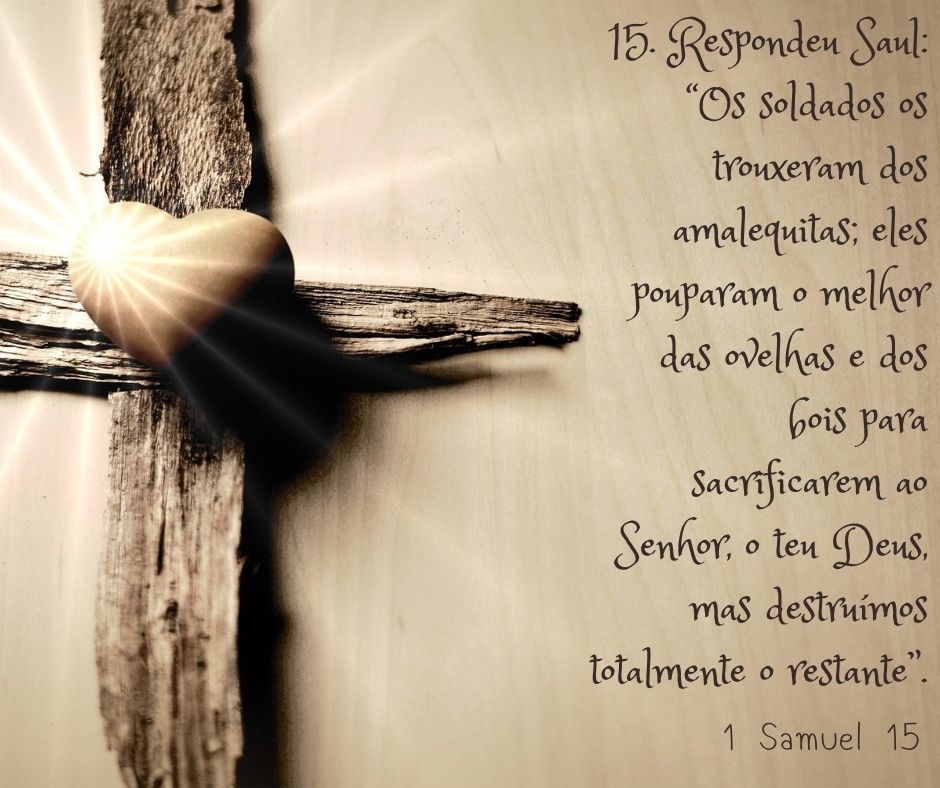 15. Respondeu Saul:
“Os soldados os
trouxeram dos
amalequitas; eles
pouparam o melhor
das ovelhas e dos
bois para
sacrificarem ao
Senhor, o teu Deus,
mas destruímos
totalmente o restante”.
1 Samuel 15